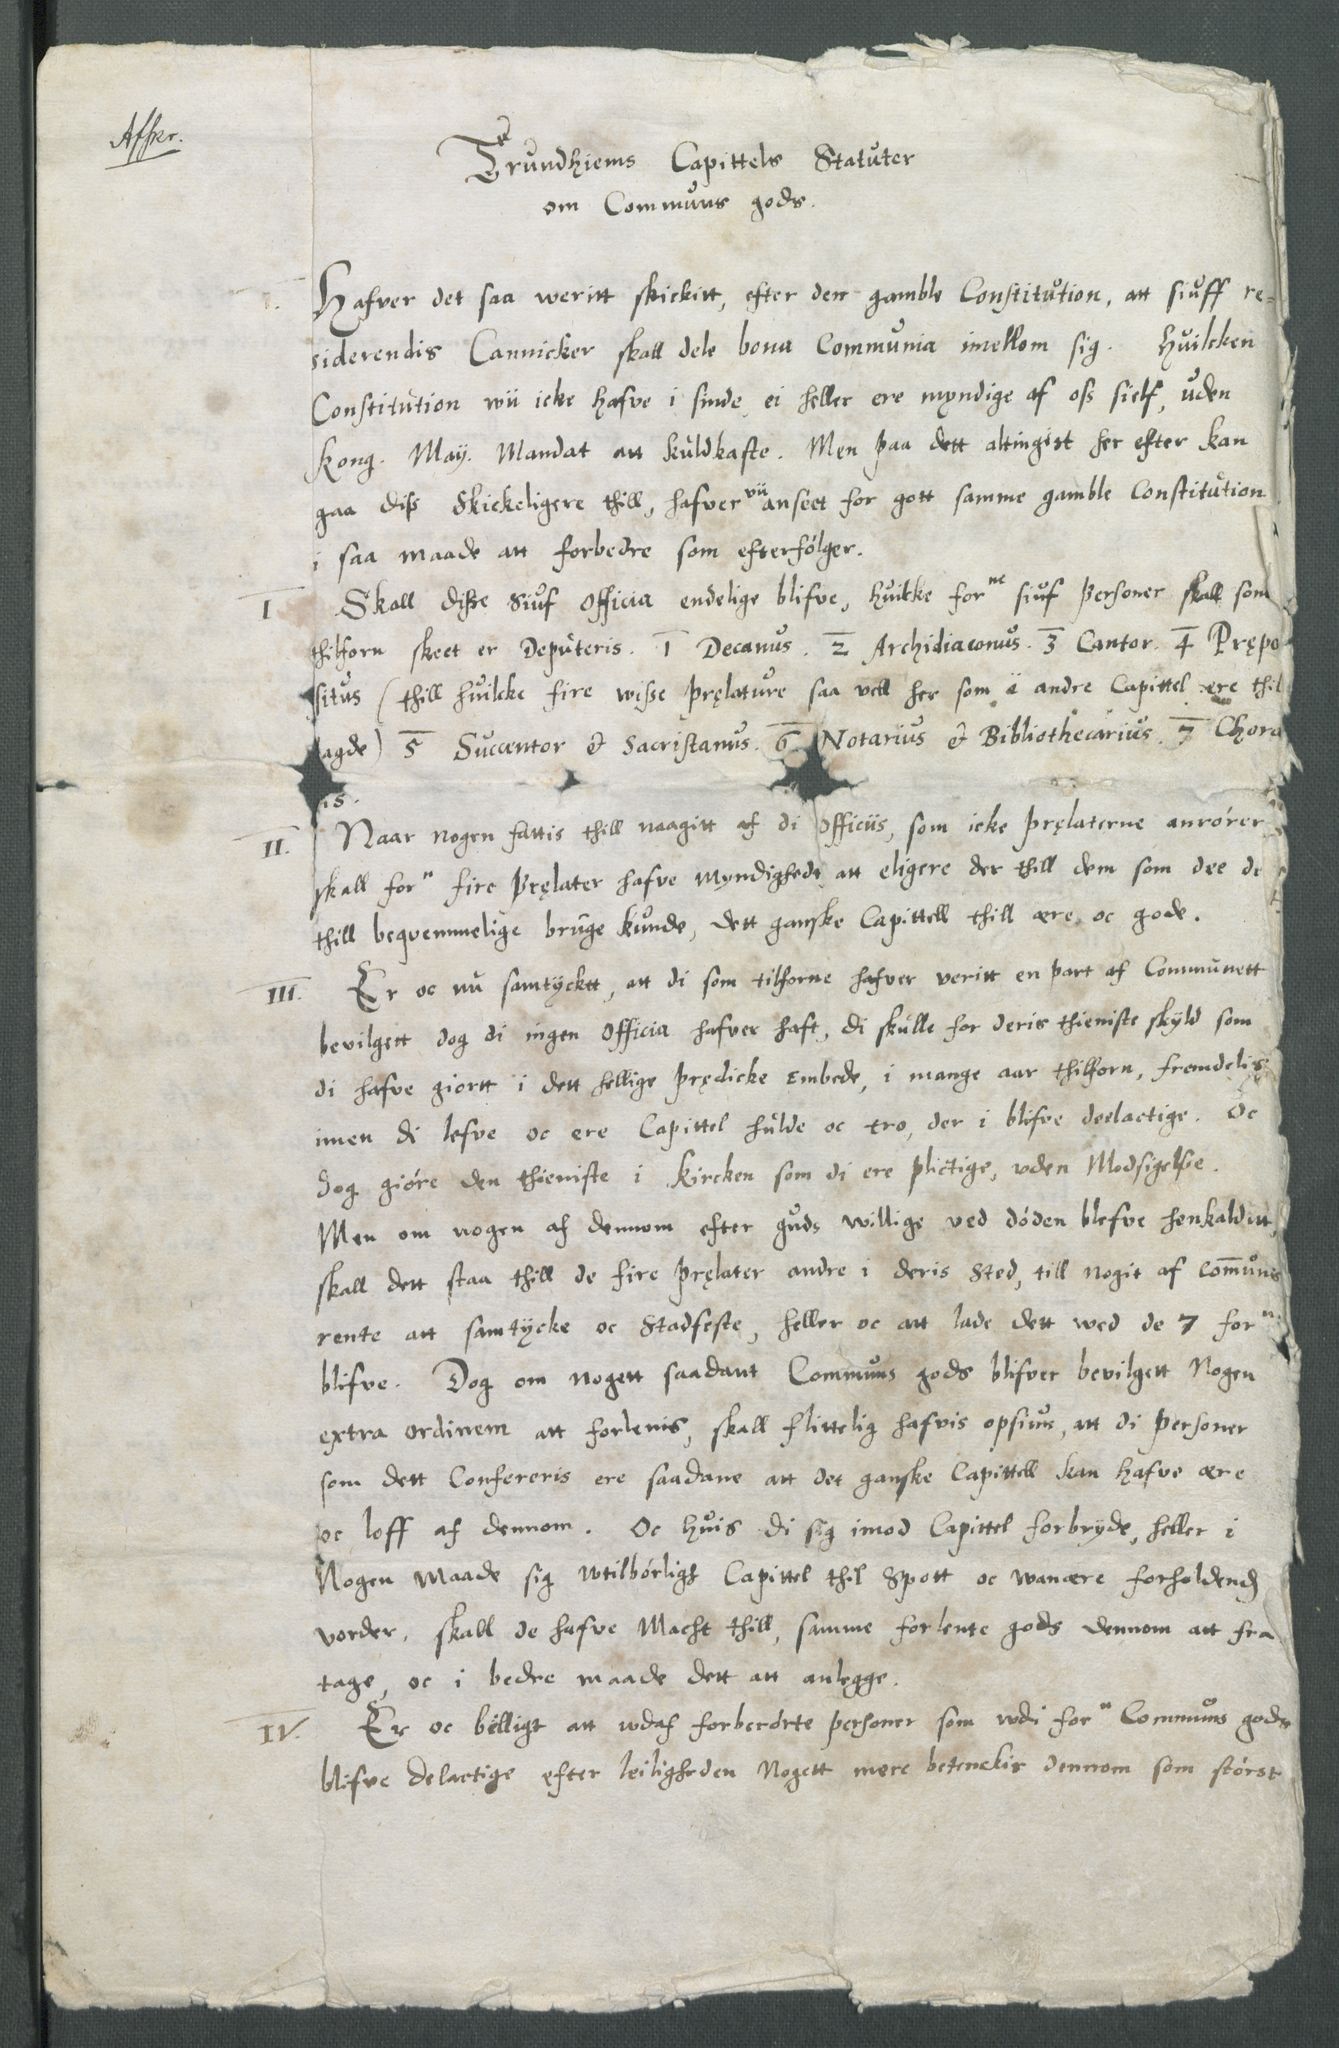 Afskr.
Trundhiems Capittels Statuter
om Communs gods.
Hafver det saa weritt skickitt, efter den gamble Constitution, att siuff re-
siderendis Cannicker skall dele bona Communia imellom sig. Huilcken
Constitution wii icke hafve i sinde, ei heller ere myndige af oss sielf, uden
Kong. May. Mandat att kuldkaste. Men paa dett altingist her efter kan
gaa diss Skickeligere thill, hafver wii anseet for gott samme gamble Constitution
i saa maade att forbedre som efterfölger.
I Skall disse Siuf Officia endelige blifve, huilke forne siuf Personer skall som
thilforn skeet er Deputeris. 1 Decanus. 2 Archidiaconus. 3 Cantor. 4 Prępo
situs (thill huilcke fire wisse pręlature saa vell her som i andre Capittel ere thil
lagde) 5 Succentor & Sacristanus. 6 Notarius & Bibliothecarius. 7 Chora
lis.
II. Naar nogen fattis thill naagitt af di Officiis, som icke pręlaterne anrörer
skall forn fire Pręlater hafve Myndighedt att eligere der thill dem som dee de
thill beqvemmelige bruge kunde, dett ganske Capittell thill ære oc gode.
III. Er oc nu samtycktt, att di som tilforne hafver veritt en part af Communett
bevilgett dog di ingen Officia hafver haft, di skulle for deris thieniste skyld som
di hafve giortt i dett hellige prędicke Embede, i mange aar thilforn, fremdelis
imen di lefve oc ere Capittel hulde oc tro, der i blifve deelactige. Oc
dog giöre den thieniste i Kircken som di ere plictige, uden Modsigelse.
Men om nogen af dennom efter guds willige ved döden blefve henkalditt,
skall dett staa thill de fire prelater andre i deris Sted, till nogit af communs
rente att samtycke oc Stadfeste, heller oc att lade dett wed de 7 forn
blifve. Dog om nogett saadant Communs gods blifver bevilgett Nogen
extra ordinem att forlenis, skall flittelig hafvis opsiun, att di Personer
som dett Confereris ere saadane att det ganske Capittell kan hafve ære
oc loff af dennom. Oc huis di sig imod Capittel forbryde, heller i
Nogen Maade sig wtilbörligt Capittel thil Spott oc wanære forholdend
vorder, skall de hafve Macht thill, samme forlente gods dennom att fra
tage, oc i bedre maade dett att anlegge.
IV. Er oc billigt att udaf forberörte personer som udi forn Communs gods
blifve delactige efter leiligheden Nogett mere betenckis dennom som störst